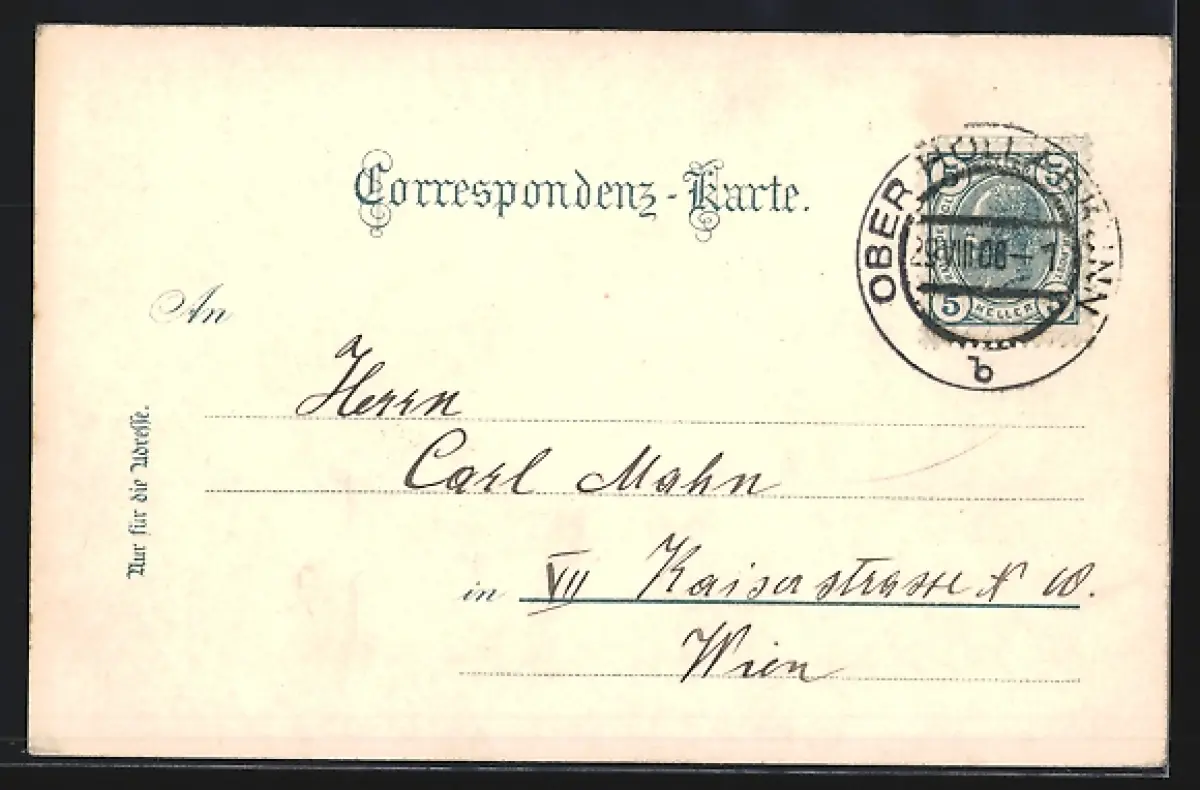 Correspondenz-Karte.
OBER HOLLABRUNN
29 VIII 06 - 1
b
5 5
5
HELLER
An
Herrn
Carl Mahn
in VII Kaiserstrasse N
Wien
Nur für die Adresse.